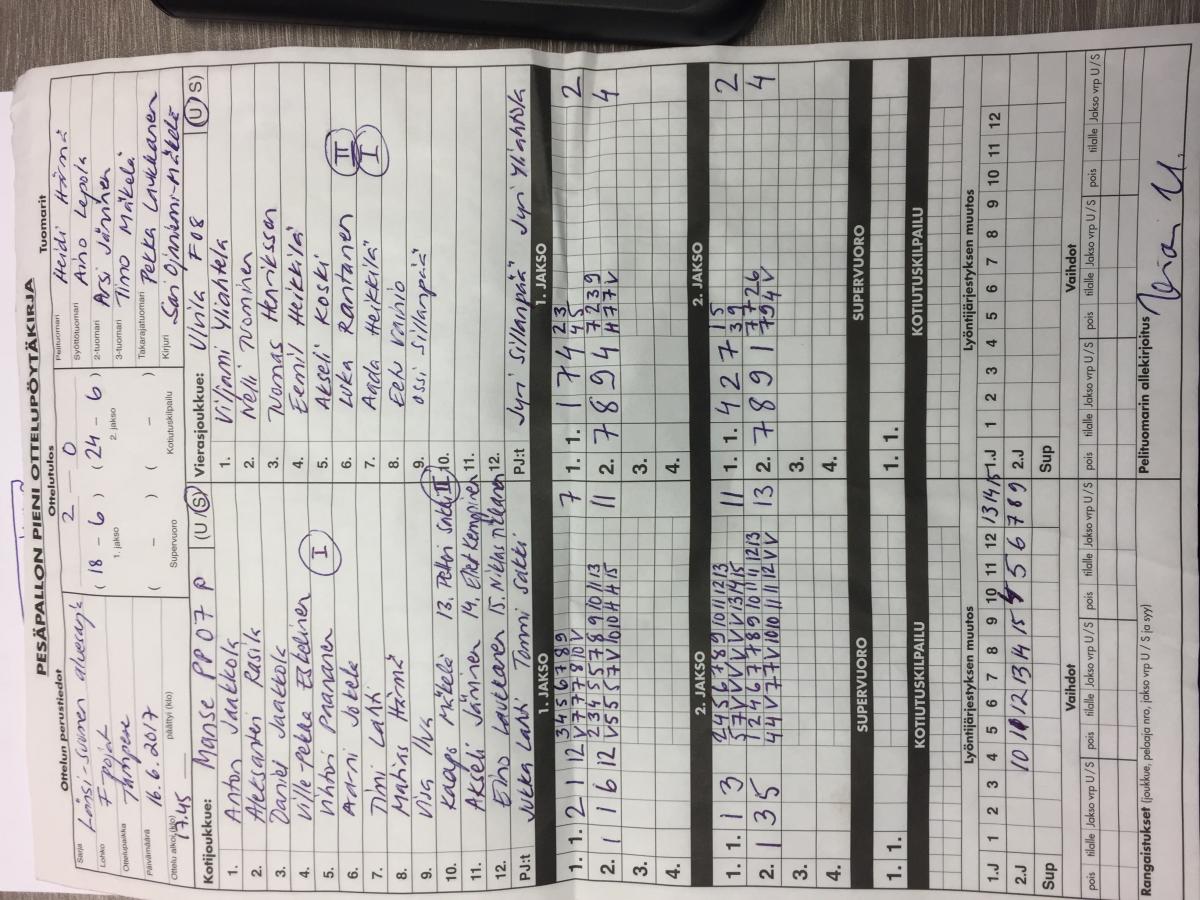 PESÄPALLON PIENI OTTELUPÖYTÄKIRJA
Ottelun perustiedot
Sarja Länsi-Suomen
Lohko F-pojat
Ottelupaikka Tampere
Päivämäärä 16.6.2017
Ottelu alkoi (klo) 17.45 päättyi (klo)
Ottelutulos
2 – 0
( 18 – 6 ) ( 24 – 6 )
1. jakso 2. jakso
( – ) ( – )
Supervuoro Kotiutuskilpailu
Tuomarit
Pelituomari Heidi Härmä
Syöttötuomari Aino Lepola
2-tuomari Arsi Järvinen
3-tuomari Timo Mäkelä
Takarajatuomari Pekka Laukkanen
Kirjuri Sari Ojaniemi-Mäkelä
Kotijoukkue: Manse PP 07 P (U / S)
1. Anton Jaakkola
2. Aleksanteri Rasila
3. Daniel Jaakkola
4. Ville-Pekka Eskelinen
5. Vihtori Paananen I
6. Aarni Jokela
7. Timi Lahti
8. Matias Härmä
9. Viia Ilva
10. Kaapo Mäkelä 13. Petteri Sakki II
11. Akseli Järvinen 14. Eliet Kemppinen
12. Eino Laukkanen 15. Niklas
PJ:t Jukka Lahti Tommi Sakki
Vierasjoukkue: Ulvila F08 (U / S)
1. Viljami Ylähtelä
2. Nelli Tuominen
3. Tuomas Henriksson
4. Eemil Heikkilä
5. Akseli Koski
6. Luka Rantanen II
7. Aada Heikkilä I
8. Eetu Vainio
9. Ossi Sillanpää
10.
11.
12.
PJ:t Jyri Sillanpää Jyri
1. JAKSO 1. JAKSO
1. 1. 2 1 12 3 4 5 6 7 8 9 7
V 7 7 7 8 10 V
2. 1 6 12 2 3 4 5 5 7 8 9 10 11 13 11
V 5 5 5 7 V 10 10 11 11 15
3.
4.
1. 1. 1 7 4 2 3 2
4 5
2. 7 8 9 4 7 2 3 9 4
4 7 7 V
3.
4.
2. JAKSO 2. JAKSO
1. 1. 1 3 2 4 5 6 7 8 9 10 11 12 13 11
5 7 V V V V V V 13 14 15
2. 1 3 5 1 2 4 6 7 7 8 9 10 11 11 12 13 13
4 4 V 7 7 V 10 10 11 11 12 V V
3.
4.
1. 1. 4 2 7 1 5 2
3 9
2. 7 8 9 1 7 7 2 6 4
7 9 4 V
3.
4.
SUPERVUORO SUPERVUORO
1. 1. 1. 1.
KOTIUTUSKILPAILU KOTIUTUSKILPAILU
Lyöntijärjestyksen muutos Lyöntijärjestyksen muutos
1.J 1 2 3 4 5 6 7 8 9 10 11 12 13 14 15
2.J 10 11 12 13 14 15 4 5 6 7 8 9
Sup
1.J 1 2 3 4 5 6 7 8 9 10 11 12
2.J
Sup
Vaihdot Vaihdot
pois tilalle Jakso vrp U / S pois tilalle Jakso vrp U / S pois tilalle Jakso vrp U / S pois tilalle Jakso vrp U / S pois tilalle Jakso vrp U / S pois tilalle Jakso vrp U / S
Rangaistukset (joukkue, pelaaja nro, jakso vrp U / S ja syy)
Pelituomarin allekirjoitus